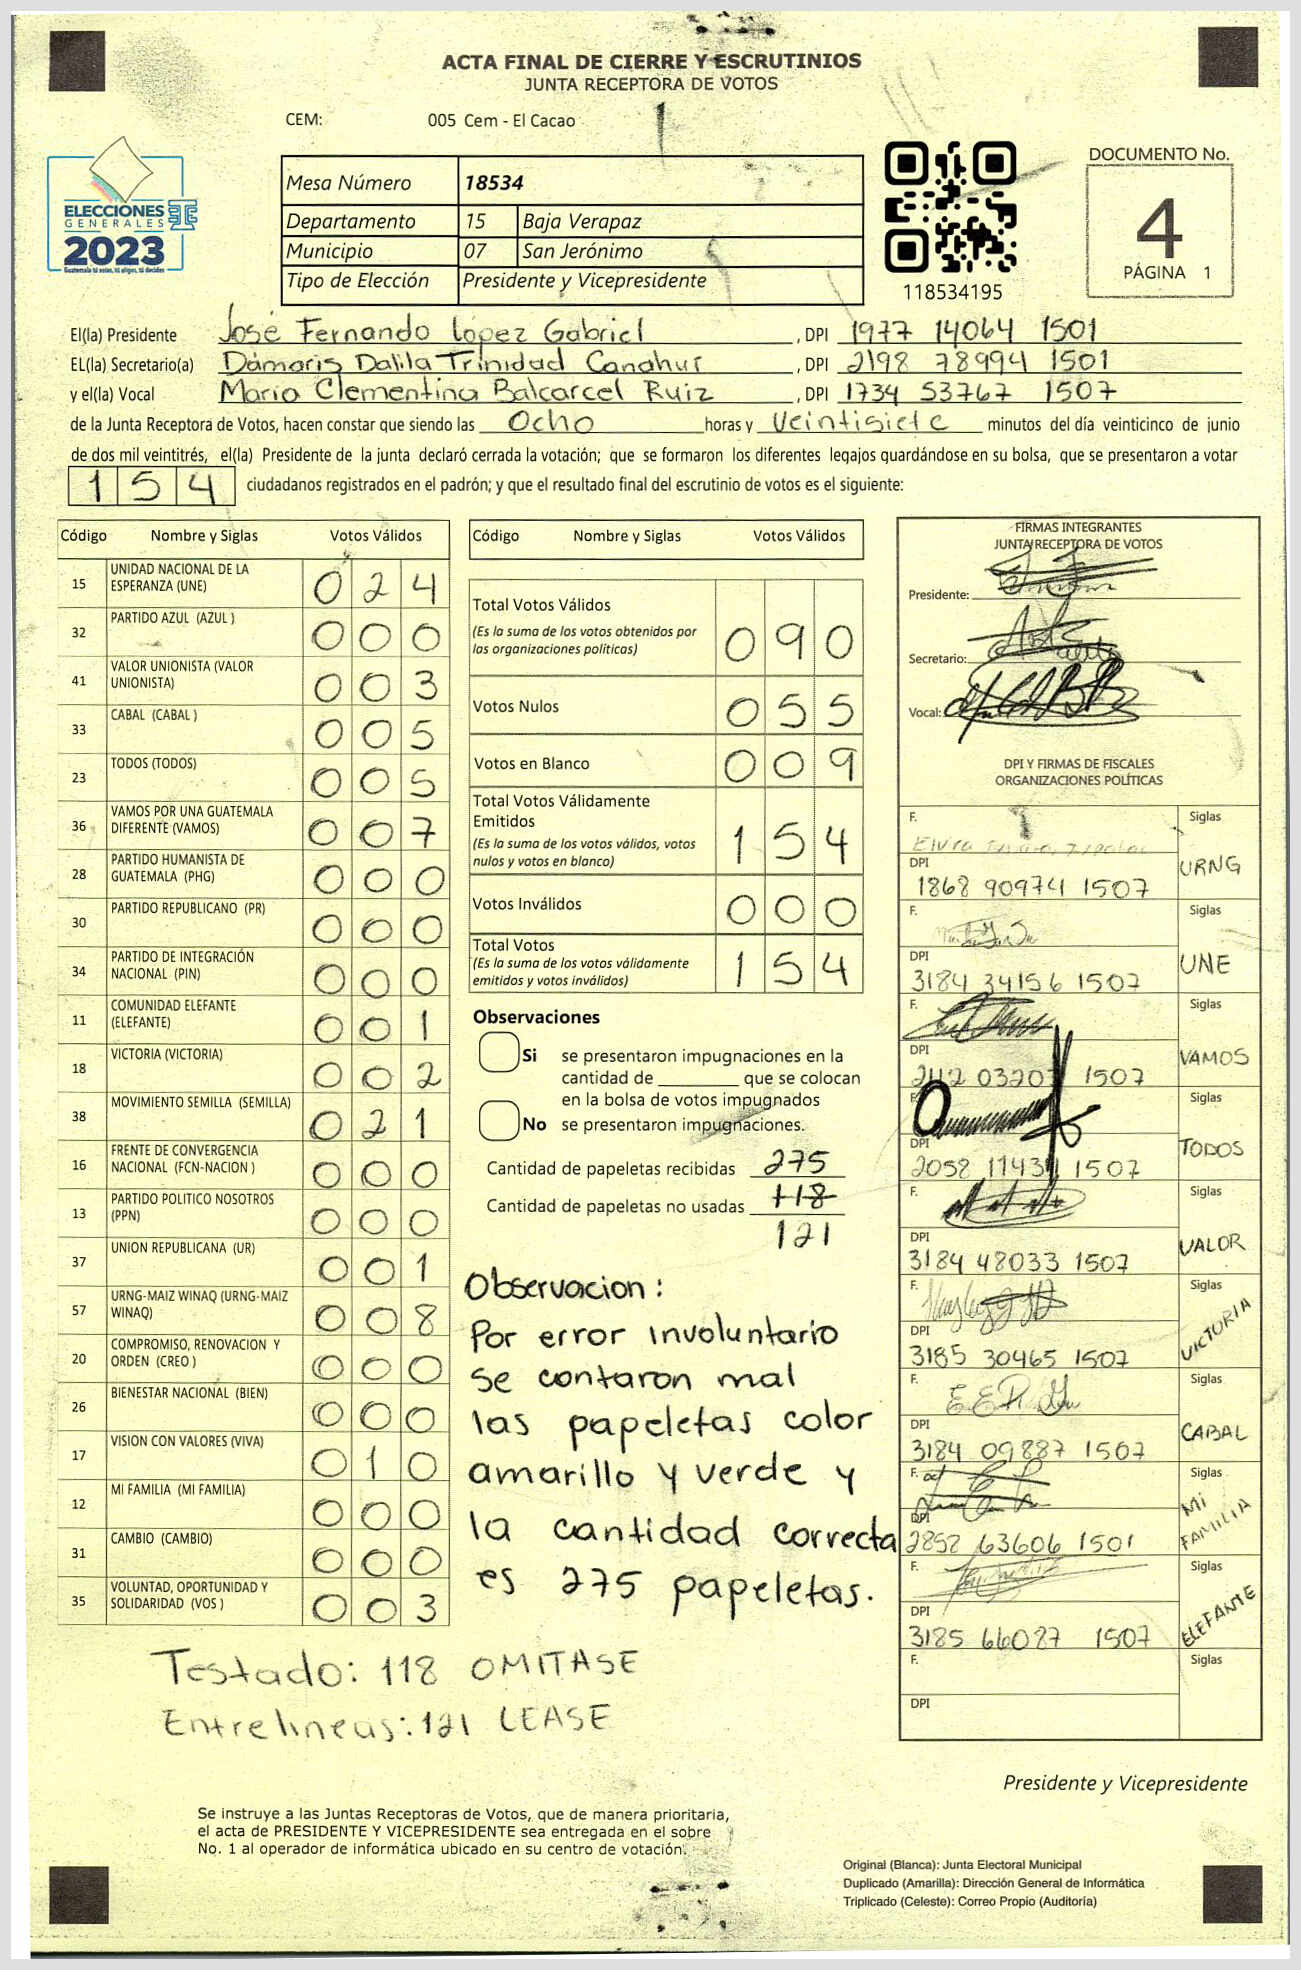 ACTA FINAL DE CIERRE Y ESCRUTINIOS
JUNTA RECEPTORA DE VOTOS
CEM: 005 Cem - El Cacao
ELECCIONES
GENERALES
2023
Guatemala tú estás, tú eliges, tú decides
Mesa Número 18534
Departamento 15 Baja Verapaz
Municipio 07 San Jerónimo
Tipo de Elección Presidente y Vicepresidente
118534195
DOCUMENTO No.
4
PÁGINA 1
El(la) Presidente José Fernando López Gabriel, DPI 1977 14064 1501
EL(la) Secretario(a) Dámaris Dalila Trinidad Canahuí, DPI 2198 78994 1501
y el(la) Vocal María Clementina Balcarcel Ruiz, DPI 1734 53767 1507
de la Junta Receptora de Votos, hacen constar que siendo las Ocho horas y Veintisiete minutos del día veinticinco de junio
de dos mil veintitrés, el(la) Presidente de la junta declaró cerrada la votación; que se formaron los diferentes legajos guardándose en su bolsa, que se presentaron a votar
154 ciudadanos registrados en el padrón; y que el resultado final del escrutinio de votos es el siguiente:
Código Nombre y Siglas Votos Válidos
15 UNIDAD NACIONAL DE LA ESPERANZA (UNE) 024
32 PARTIDO AZUL (AZUL ) 000
41 VALOR UNIONISTA (VALOR UNIONISTA) 003
33 CABAL (CABAL ) 005
23 TODOS (TODOS) 005
36 VAMOS POR UNA GUATEMALA DIFERENTE (VAMOS) 007
28 PARTIDO HUMANISTA DE GUATEMALA (PHG) 000
30 PARTIDO REPUBLICANO (PR) 000
34 PARTIDO DE INTEGRACIÓN NACIONAL (PIN) 000
11 COMUNIDAD ELEFANTE (ELEFANTE) 001
18 VICTORIA (VICTORIA) 002
38 MOVIMIENTO SEMILLA (SEMILLA) 021
16 FRENTE DE CONVERGENCIA NACIONAL (FCN-NACION ) 000
13 PARTIDO POLITICO NOSOTROS (PPN) 000
37 UNION REPUBLICANA (UR) 001
57 URNG-MAIZ WINAQ (URNG-MAIZ WINAQ) 008
20 COMPROMISO, RENOVACION Y ORDEN (CREO ) 000
26 BIENESTAR NACIONAL (BIEN) 000
17 VISION CON VALORES (VIVA) 010
12 MI FAMILIA (MI FAMILIA) 000
31 CAMBIO (CAMBIO) 000
35 VOLUNTAD, OPORTUNIDAD Y SOLIDARIDAD (VOS ) 003
Código Nombre y Siglas Votos Válidos
Total Votos Válidos
(Es la suma de los votos obtenidos por
las organizaciones políticas) 090
Votos Nulos 055
Votos en Blanco 009
Total Votos Válidamente
Emitidos
(Es la suma de los votos válidos, votos
nulos y votos en blanco) 154
Votos Inválidos 000
Total Votos
(Es la suma de los votos válidamente
emitidos y votos inválidos) 154
Observaciones
Si se presentaron impugnaciones en la
cantidad de ________ que se colocan
en la bolsa de votos impugnados
No se presentaron impugnaciones.
Cantidad de papeletas recibidas 275
Cantidad de papeletas no usadas 118
121
Observacion:
Por error involuntario
Se contaron mal
las papeletas color
amarillo y verde y
la cantidad correcta
es 275 papeletas.
Testado: 118 OMITASE
Entrelineas: 121 LEASE
FIRMAS INTEGRANTES
JUNTA RECEPTORA DE VOTOS
Presidente:
Secretario:
Vocal:
DPI Y FIRMAS DE FISCALES
ORGANIZACIONES POLÍTICAS
F. Siglas
DPI 1868 90974 1507 URNG
F. Siglas
DPI 3184 34156 1507 UNE
F. Siglas
DPI 2112 03207 1507 VAMOS
F. Siglas
DPI 2058 11434 1507 TODOS
F. Siglas
DPI 3184 48033 1507 VALOR
F. Siglas
DPI 3185 30465 1507 VICTORIA
F. Siglas
DPI 3184 09887 1507 CABAL
F. Siglas
DPI 2852 63606 1501 MI FAMILIA
F. Siglas
DPI 3185 66087 1507 ELEFANTE
F. Siglas
DPI
Presidente y Vicepresidente
Se instruye a las Juntas Receptoras de Votos, que de manera prioritaria,
el acta de PRESIDENTE Y VICEPRESIDENTE sea entregada en el sobre
No. 1 al operador de informática ubicado en su centro de votación.
Original (Blanca): Junta Electoral Municipal
Duplicado (Amarilla): Dirección General de Informática
Triplicado (Celeste): Correo Propio (Auditoría)